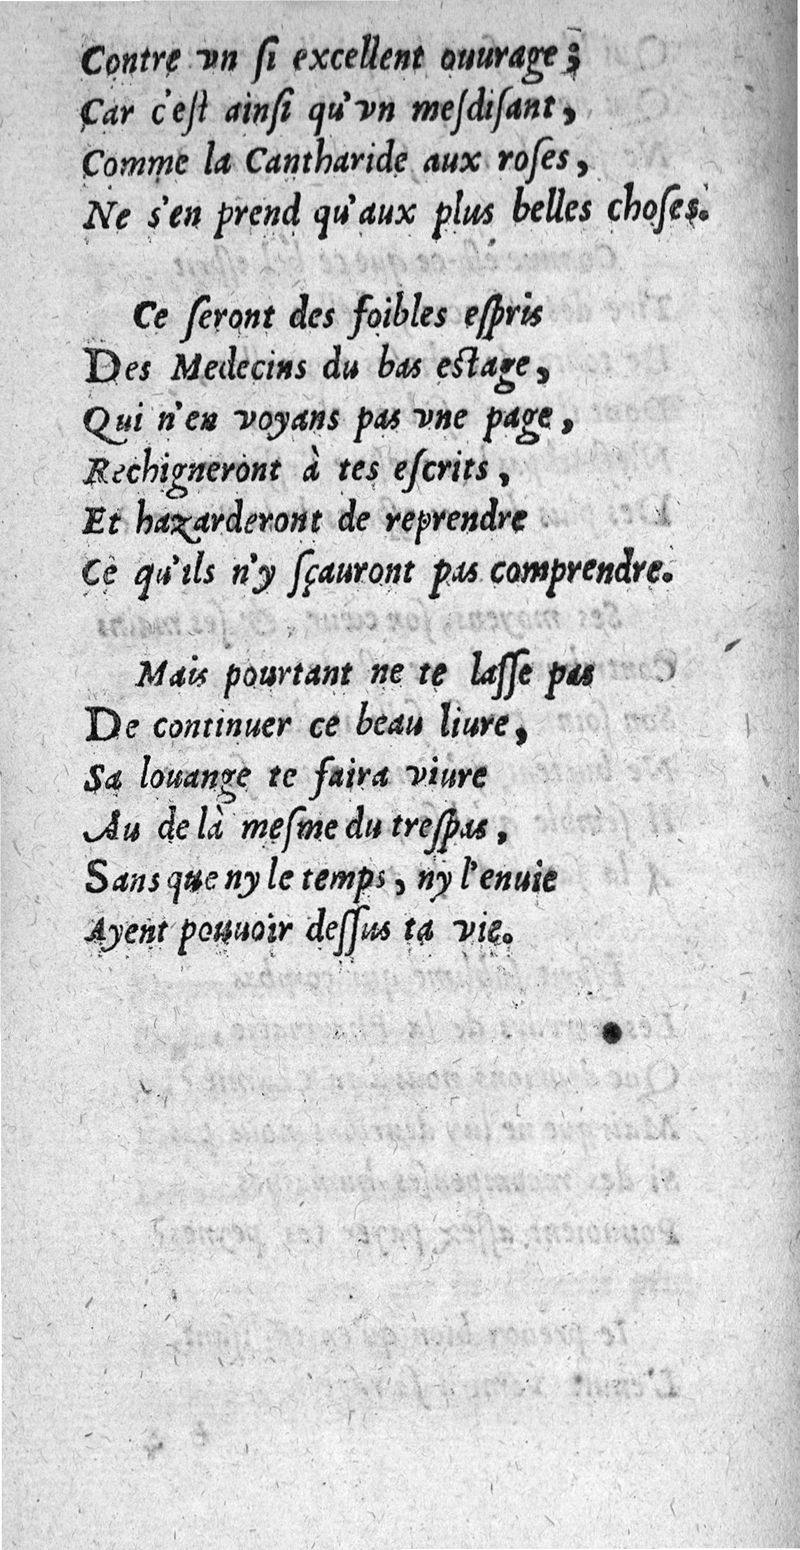 Contre vn ſi excellent ouurage;
Car c'eſt ainſi qu'vn meſdiſant,
Comme la Cantharide aux roſes,
Ne s'en prend qu'aux plus belles choſes.
Ce ſeront des foibles eſpris
Des Medecins du bas eſtage,
Qui n'en voyans pas vne page,
Rechigneront à tes eſcrits,
Et hazarderont de reprendre
Ce qu'ils n'y ſçauront pas comprendre.
Mais pourtant ne te laſſe pas
De continuer ce beau liure,
Sa louange te faira viure
Au delà meſme du treſpas,
Sans que ny le temps, ny l'enuie
Ayent pouuoir deſſus ta vie.